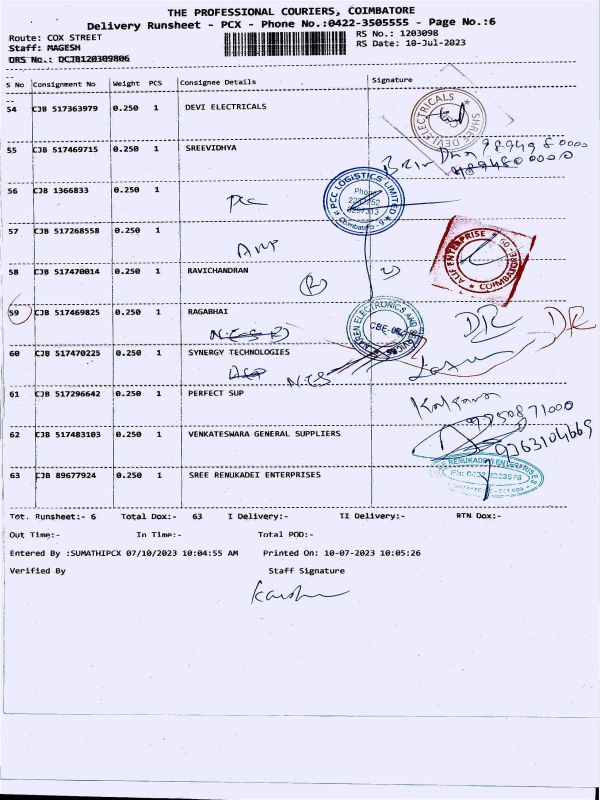 THE PROFESSIONAL COURIERS, COIMBATORE
Delivery Runsheet - PCX - Phone No.:0422-3505555 - Page No.:6
Route: COX STREET RS No.: 1203098
Staff: MAGESH RS Date: 10-Jul-2023
DRS No.: DCJB120309806
S No Consignment No Weight PCS Consignee Details Signature
54 CJB 517363979 0.250 1 DEVI ELECTRICALS
SHREE DEVI ELECTRICALS
55 CJB 517469715 0.250 1 SREEVIDHYA
9894980000
9894800000
56 CJB 1366833 0.250 1
PCC LOGISTICS LIMITED
Phone
Coimbatore - 9
57 CJB 517268558 0.250 1
ALIF ENTERPRISE
COIMBATORE
58 CJB 517470014 0.250 1 RAVICHANDRAN
59 CJB 517469825 0.250 1 RAGABHAI
DR DR
ELECTRONICS AND
CBE-
60 CJB 517470225 0.250 1 SYNERGY TECHNOLOGIES
NES
61 CJB 517296642 0.250 1 PERFECT SUP
9750871000
62 CJB 517483103 0.250 1 VENKATESWARA GENERAL SUPPLIERS
9763104669
63 CJB 89677924 0.250 1 SREE RENUKADEI ENTERPRISES
RENUKADEVI ENTERPRISES
Tot. Runsheet:- 6 Total Dox:- 63 I Delivery:- II Delivery:- RTN Dox:-
Out Time:- In Time:- Total POD:-
Entered By :SUMATHIPCX 07/10/2023 10:04:55 AM Printed On: 10-07-2023 10:05:26
Verified By Staff Signature